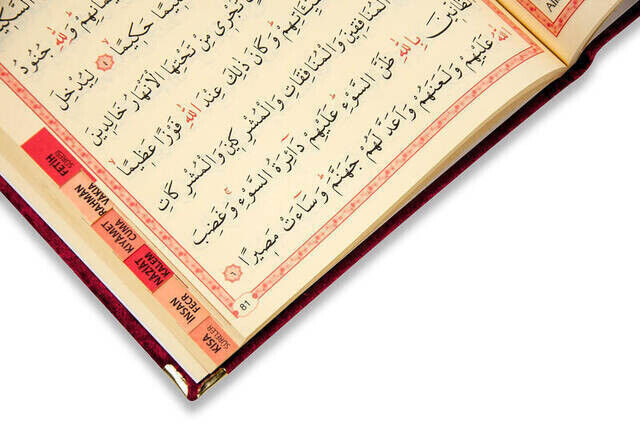 وَلِلّٰهِ جُنُودُ
حَكِيمًا ٤ لِيُدْخِلَ
تَجْرِى مِنْ تَحْتِهَا الْاَنْهَارُ خَالِدِينَ
وَكَانَ ذٰلِكَ عِنْدَ اللّٰهِ فَوْزًا عَظِيمًا
الْمُنَافِقِينَ وَالْمُنَافِقَاتِ وَالْمُشْرِكِينَ وَالْمُشْرِكَاتِ
بِاللّٰهِ ظَنَّ السَّوْءِ عَلَيْهِمْ دَٓائِرَةُ السَّوْءِ وَغَضِبَ
اللّٰهُ عَلَيْهِمْ وَلَعَنَهُمْ وَاَعَدَّ لَهُمْ جَهَنَّمَ وَسَٓاءَتْ مَصِيرًا ٦
81
FETİH
SURESİ
RAHMAN
VAKIA
KIYAMET
CUMA
NAZİAT
KALEM
İNSAN
FECR
KISA
SURELER